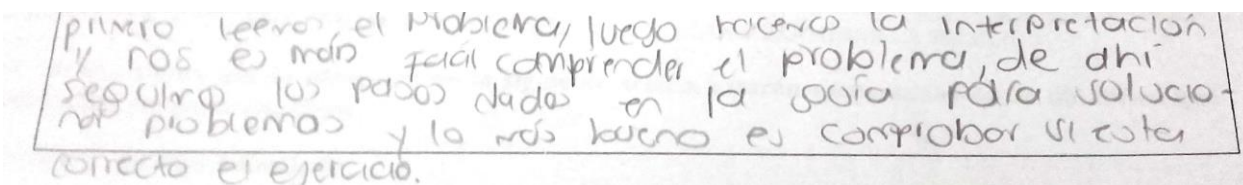 primero leemos el problema, luego hacemos la interpretación
y nos es más fácil comprender el problema, de ahí
seguimos los pasos dados en la guía para solucio-
nar problemas y lo más bueno es comprobar si esta
correcto el ejercicio.